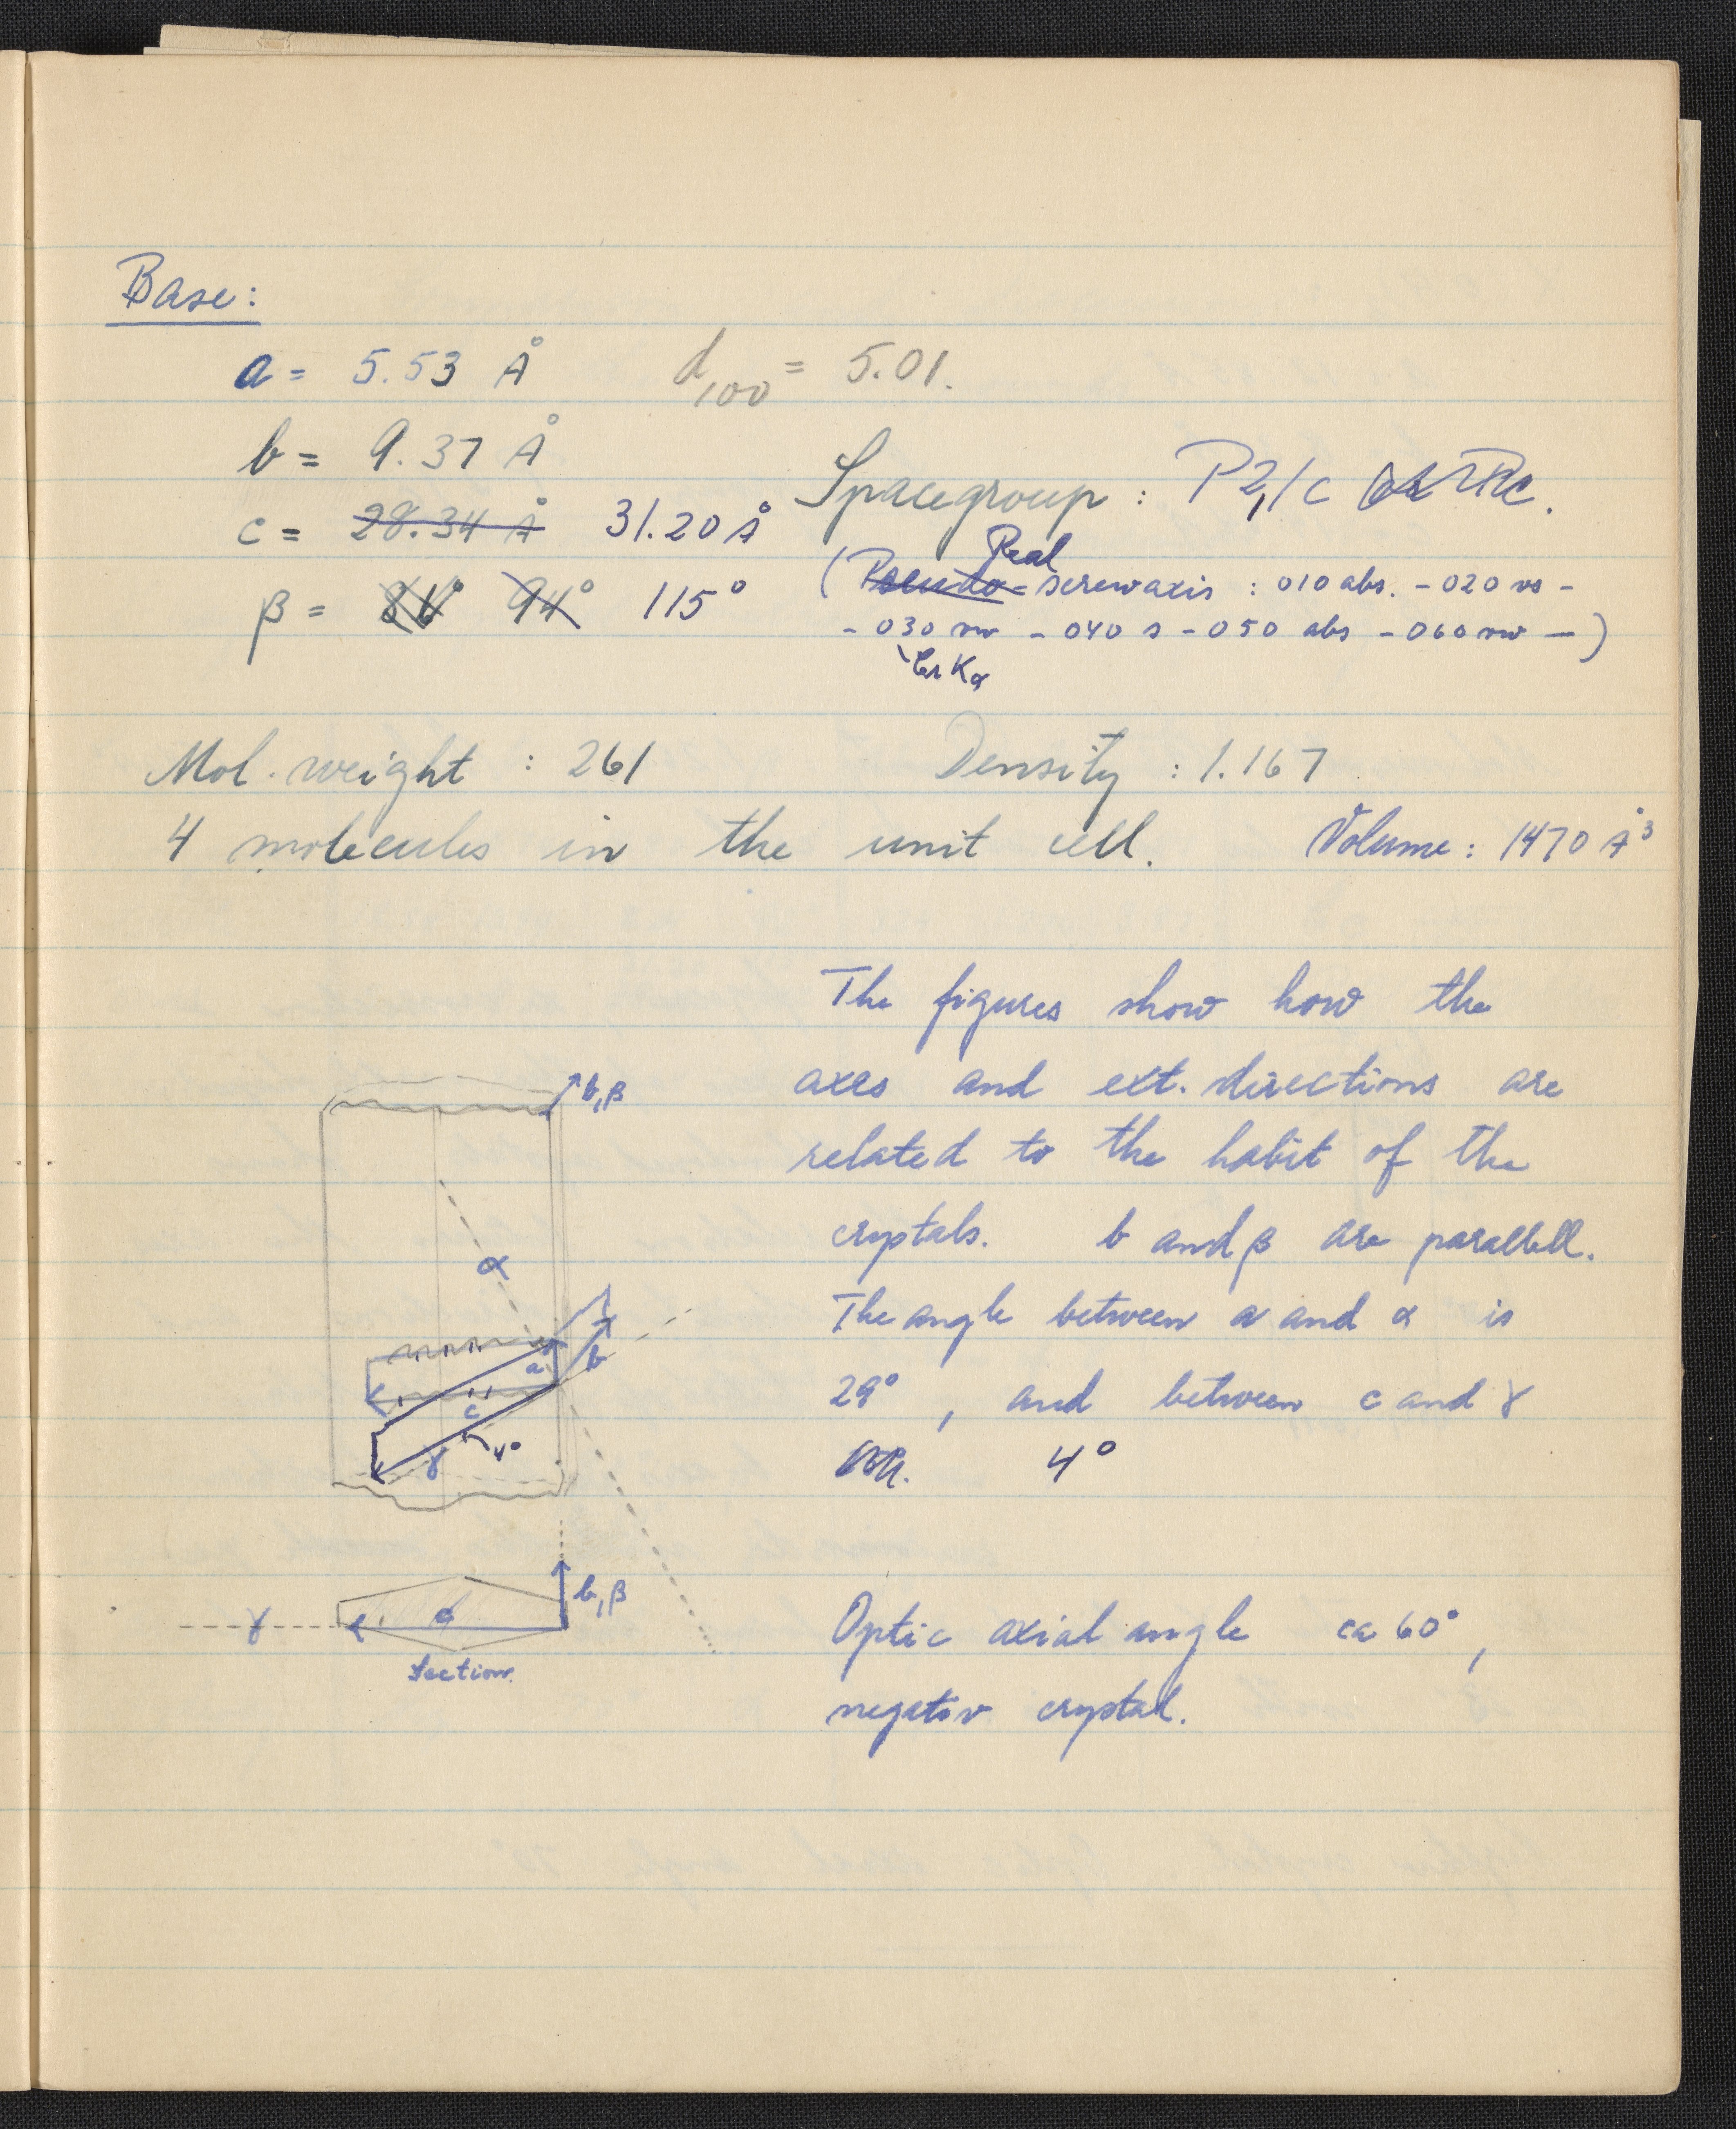 Base:
a = 5.53 Å d100 = 5.01.
b = 9.37 Å
Spacegroup : P21/c or Pc.
c = 28.34 Å 31.20 Å
Real
(Pseudo-screwaxis : 010 abs. - 020 vs -
β = 81° 94° 115°
- 030 vw - 040 s - 050 abs - 060 vw - )
Cr Kα
Mol. weight : 261 Density : 1.167
4 molecules in the unit cell. Volume : 1470 Å³
The figures show how the
axes and ext. directions are
related to the habit of the
crystals. b and β are parallell.
The angle between a and α is
29° , and between c and γ
4°
b,β
α
a
b
c
γ 4°
b,β
γ
Section.
Optic axial angle ca 60°,
negativ crystal.